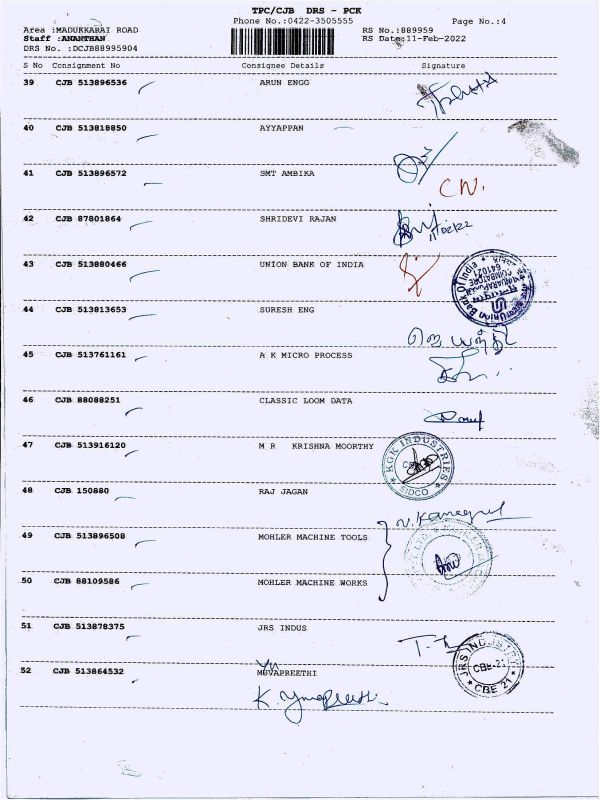 TPC/CJB DRS - PCK
Phone No.:0422-3505555 Page No.:4
Area :MADUKKARAI ROAD RS No.:889959
Staff :ANANTHAN RS Date:11-Feb-2022
DRS No. :DCJB88995904
S No Consignment No Consignee Details Signature
39 CJB 513896536 ARUN ENGG
40 CJB 513818850 AYYAPPAN
41 CJB 513896572 SMT AMBIKA
C N.
42 CJB 87801864 SHRIDEVI RAJAN
11/02/22
43 CJB 513880466 UNION BANK OF INDIA
Union Bank Of India
COIMBATORE
44 CJB 513813653 SURESH ENG
45 CJB 513761161 A K MICRO PROCESS
46 CJB 88088251 CLASSIC LOOM DATA
47 CJB 513916120 M R KRISHNA MOORTHY
KGK INDUSTRIES
SIDCO
48 CJB 150880 RAJ JAGAN
49 CJB 513896508 MOHLER MACHINE TOOLS
50 CJB 88109586 MOHLER MACHINE WORKS
51 CJB 513878375 JRS INDUS
JRS INDUSTRY
CBE-21
CBE 21
52 CJB 513864532 MUVAPREETHI